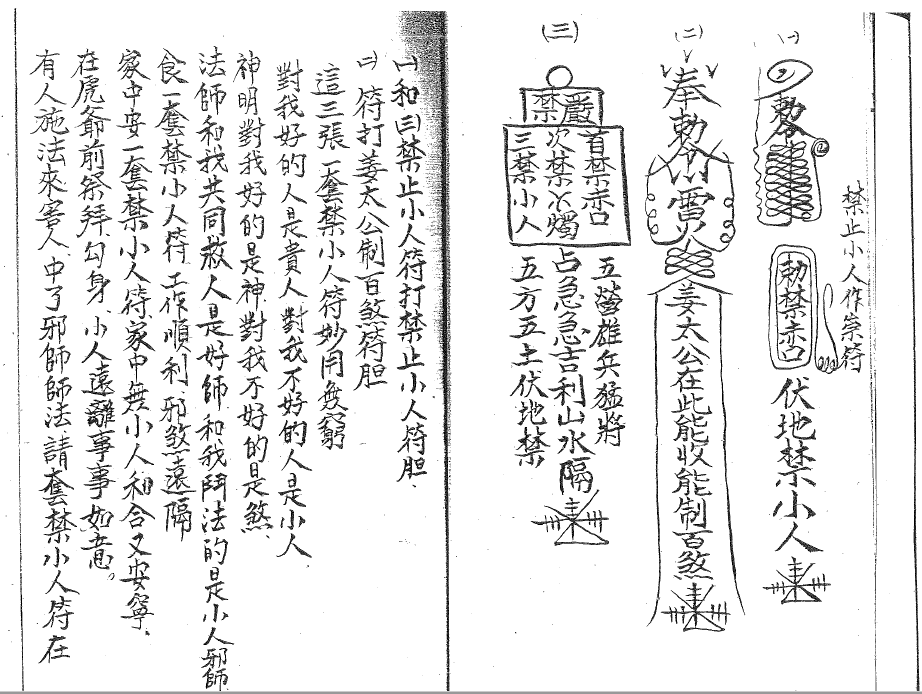 禁止小人作祟符
㈠
勅令
勅禁赤口
伏地禁小人
㈡
奉勅令雷火姜太公在此能收能制百煞
㈢
嚴禁
首禁赤口
次禁火燭
三禁小人
五營雄兵猛將
占急急吉利山水隔
五方五土伏地禁
㈠和㈢禁止小人符打禁止小人符胆.
㈡符打姜太公制百煞符胆
這三張一套禁小人符妙用無窮
對我好的人是貴人對我不好的人是小人
神明對我好的是神對我不好的是煞.
法師和我共同救人是好師和我鬥法的是小人邪師.
食一套禁小人符.工作順利.邪煞遠隔
家中安一套禁小人符家中無小人和合又安寧.
在虎爺前祭拜.勾身.小人遠離事事如意。
有人施法來害人.中了邪師師法請套禁小人符在